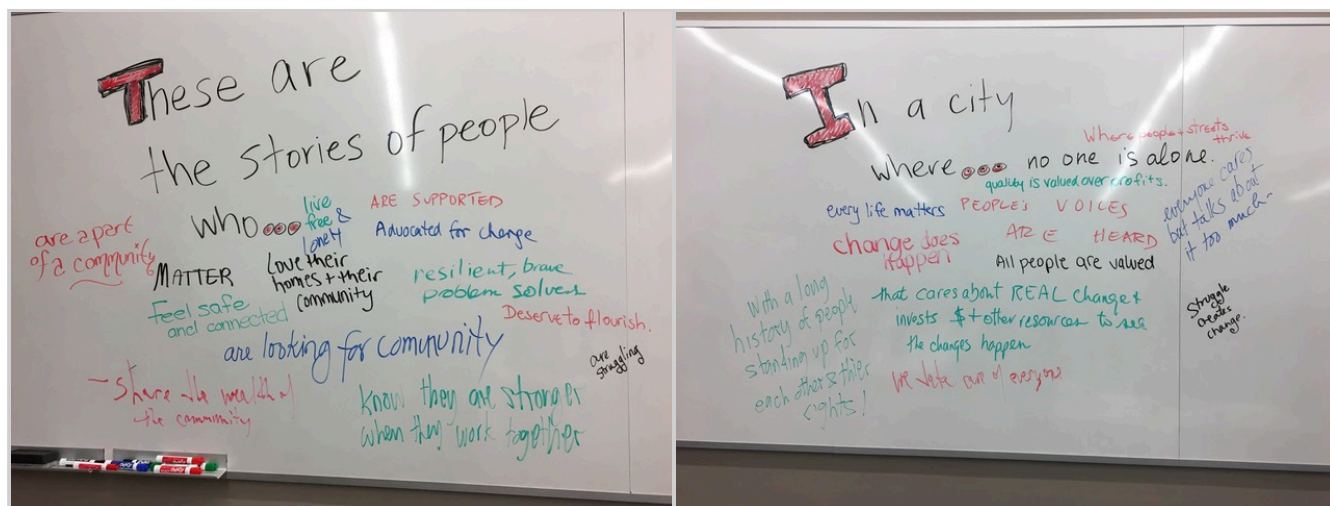 These are
the stories of people
who...
live
free &
lonely
ARE SUPPORTED
Advocated for change
are a part
of a community
MATTER
love their
homes + their
community
resilient, brave
problem solvers
Feel safe
and connected
Deserve to flourish.
are looking for community
are
struggling
- Share the wealth of
the community
know they are stronger
when they work together
In a city
where... no one is alone.
Where people + streets
thrive
quality is valued over profits.
every life matters
PEOPLE'S VOICES
ARE HEARD
everyone cares
but talks about
it too much-
change does
Happen
All people are valued
With a long
history of people
standing up for
each other & thier
rights!
that cares about REAL change +
invests $ + other resources to see
the changes happen
Struggle
creates
change.
We take care of everyone